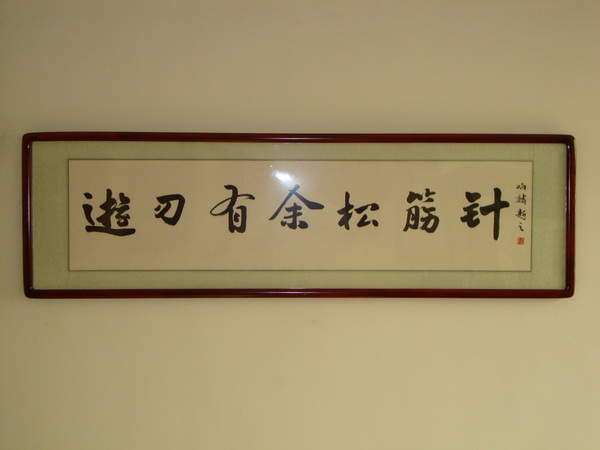 遊刃有余松筋针
题之